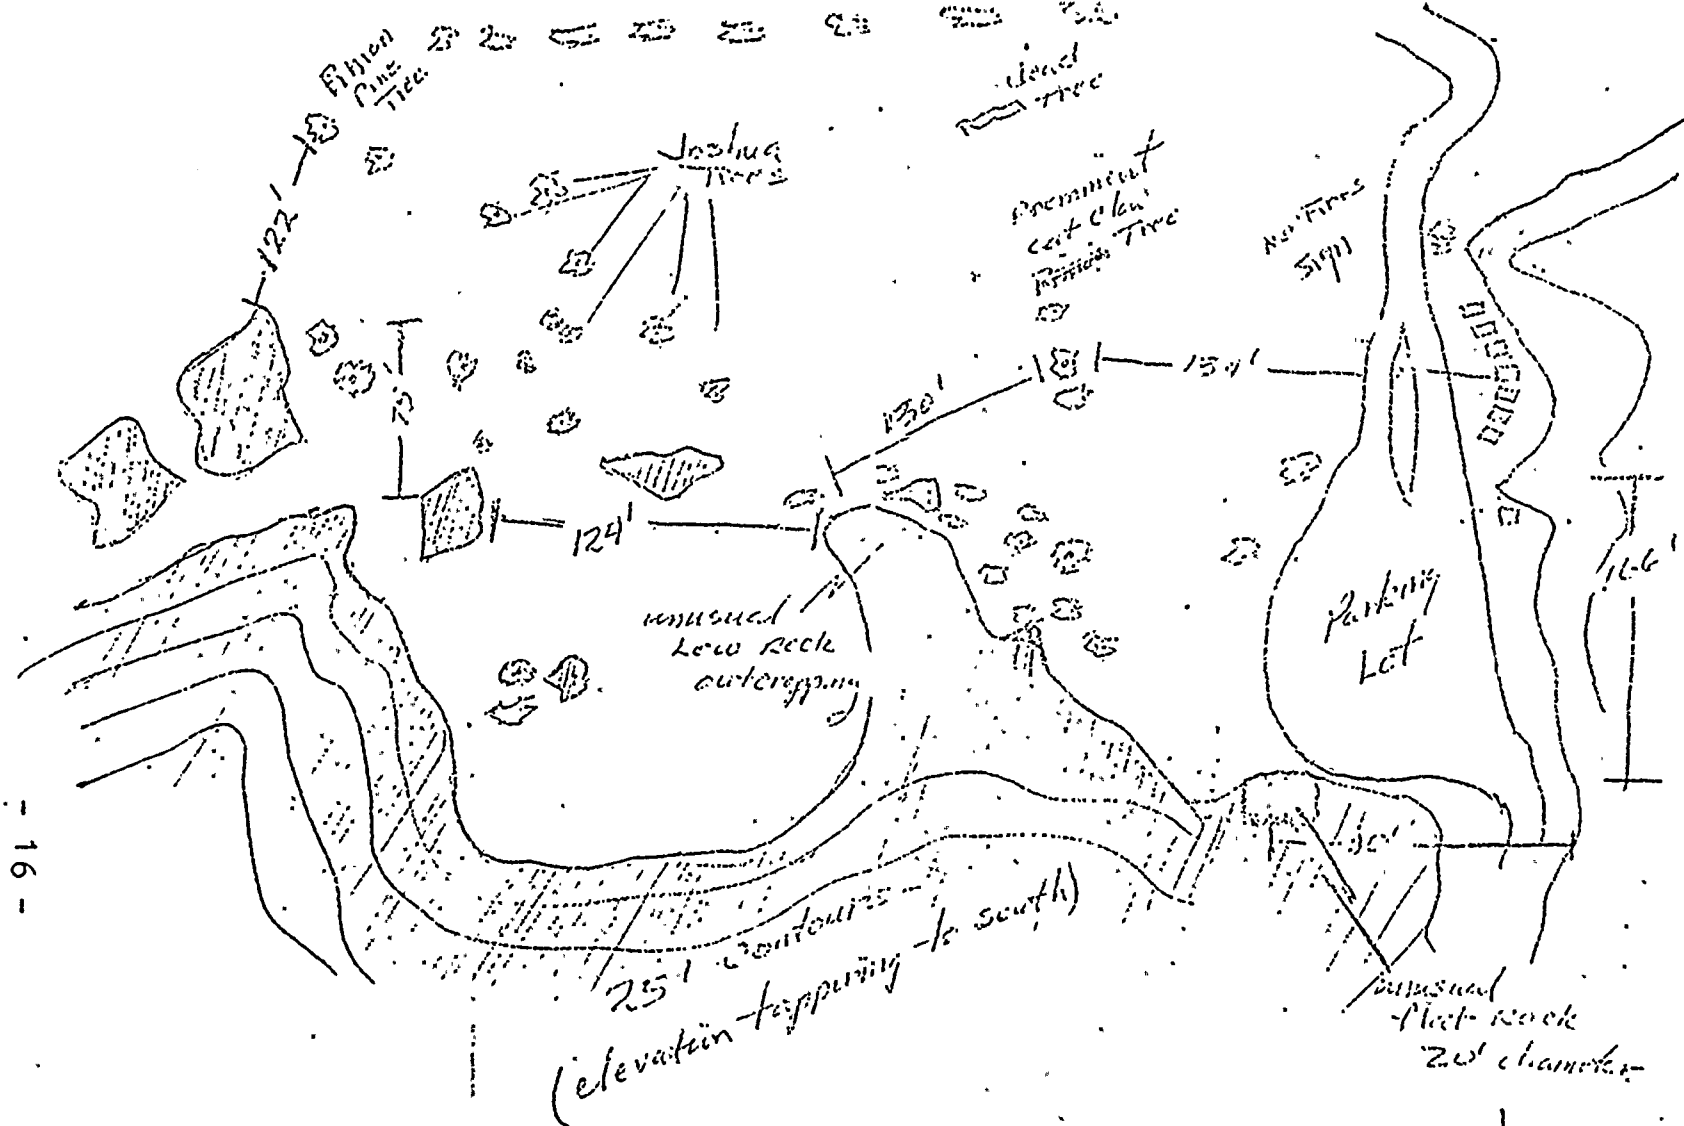 Pinion
Pine
Tree
Dead
Tree
Joshua
Trees
Preminent
Cat Claw
Tree
No Fires
Sign
122'
75'
130'
124'
unusual
Low Rock
outcropping
Parking
Lot
166'
25' Contours
(elevation tappuring to south)
unusual
flat rock
20'
- 16 -